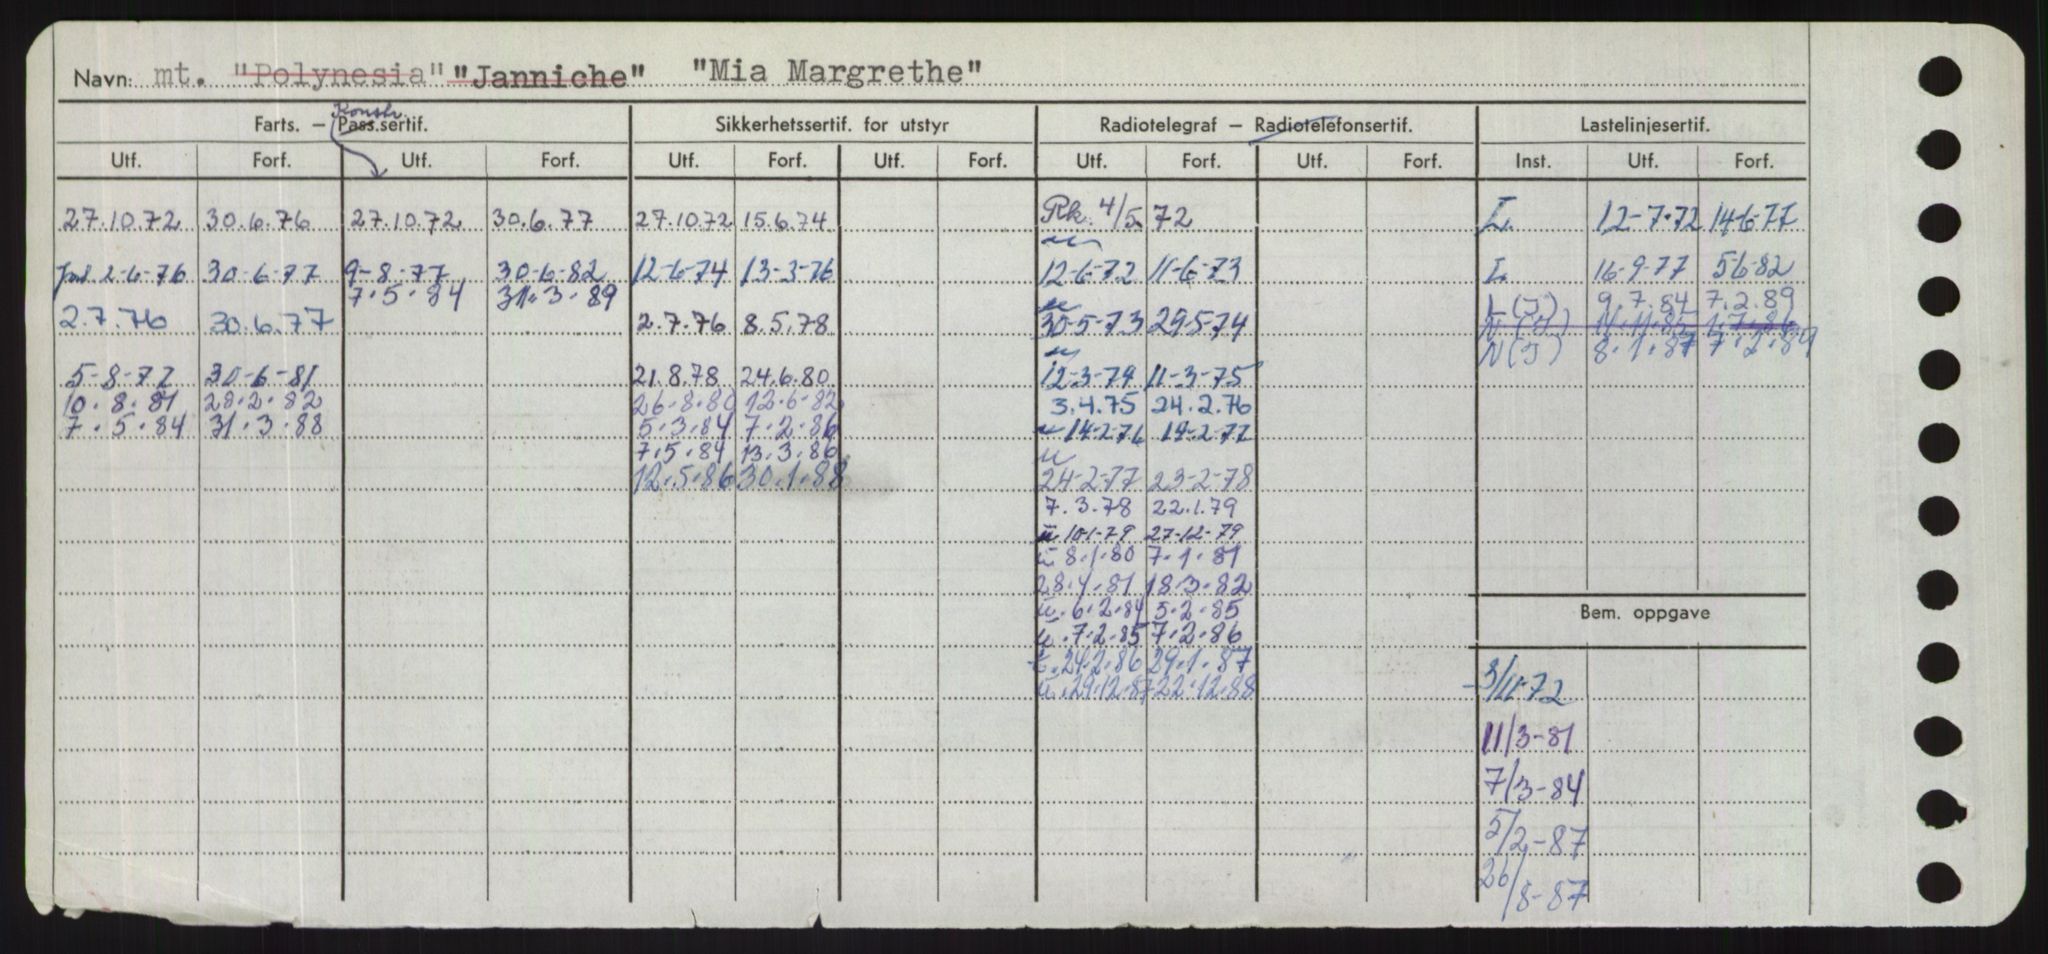 Navn: mt. "Polynesia" "Janniche" "Mia Margrethe"
Konstr.
Farts. — Pass.sertif. Sikkerhetssertif. for utstyr Radiotelegraf — Radiotelefonsertif. Lastelinjesertif.
Utf. Forf. Utf. Forf. Utf. Forf. Utf. Forf. Utf. Forf. Utf. Forf. Inst. Utf. Forf.
27.10.72 30.6.76 27.10.72 30.6.77 27.10.72 15.6.74 Rk. 4/5 72 L. 12-7-72 14-6-77
2-6-76 30-6-77 9-8-77 30-6-82 12-6-74 13-3-76 12-6-72 11-6-73 L. 16-9-77 5-6-82
7.5.84 31.3.89 L(J) 9.7.84 7.2.89
2.7.76 30.6.77 2.7.76 8.5.78 30-5-73 29-5-74 N(J) 11.11.85
N(J) 8.1.87 7.2.89
5-8-77 30-6-81 21.8.78 24.6.80 12-3-74 11-3-75
10.8.81 28.2.82 26-8-80 12.6.82 3.4.75 24.2.76
7.5.84 31.3.88 5.3.84 7.2.86 14-2-76 14-2-77
7.5.84 13.3.86
12.5.86 30.1.88 24-2-77 23-2-78
7.3.78 22.1.79
10-1-79 27-12-79
8.1.80 7.1.81
28.4.81 18.3.82
6.2.84 5.2.85 Bem. oppgave
7.2.85 7.2.86
24.2.86 29.1.87
29.12.87 22.12.88 3/11-72
11/3-81
7/3-84
5/2-87
26/8-87